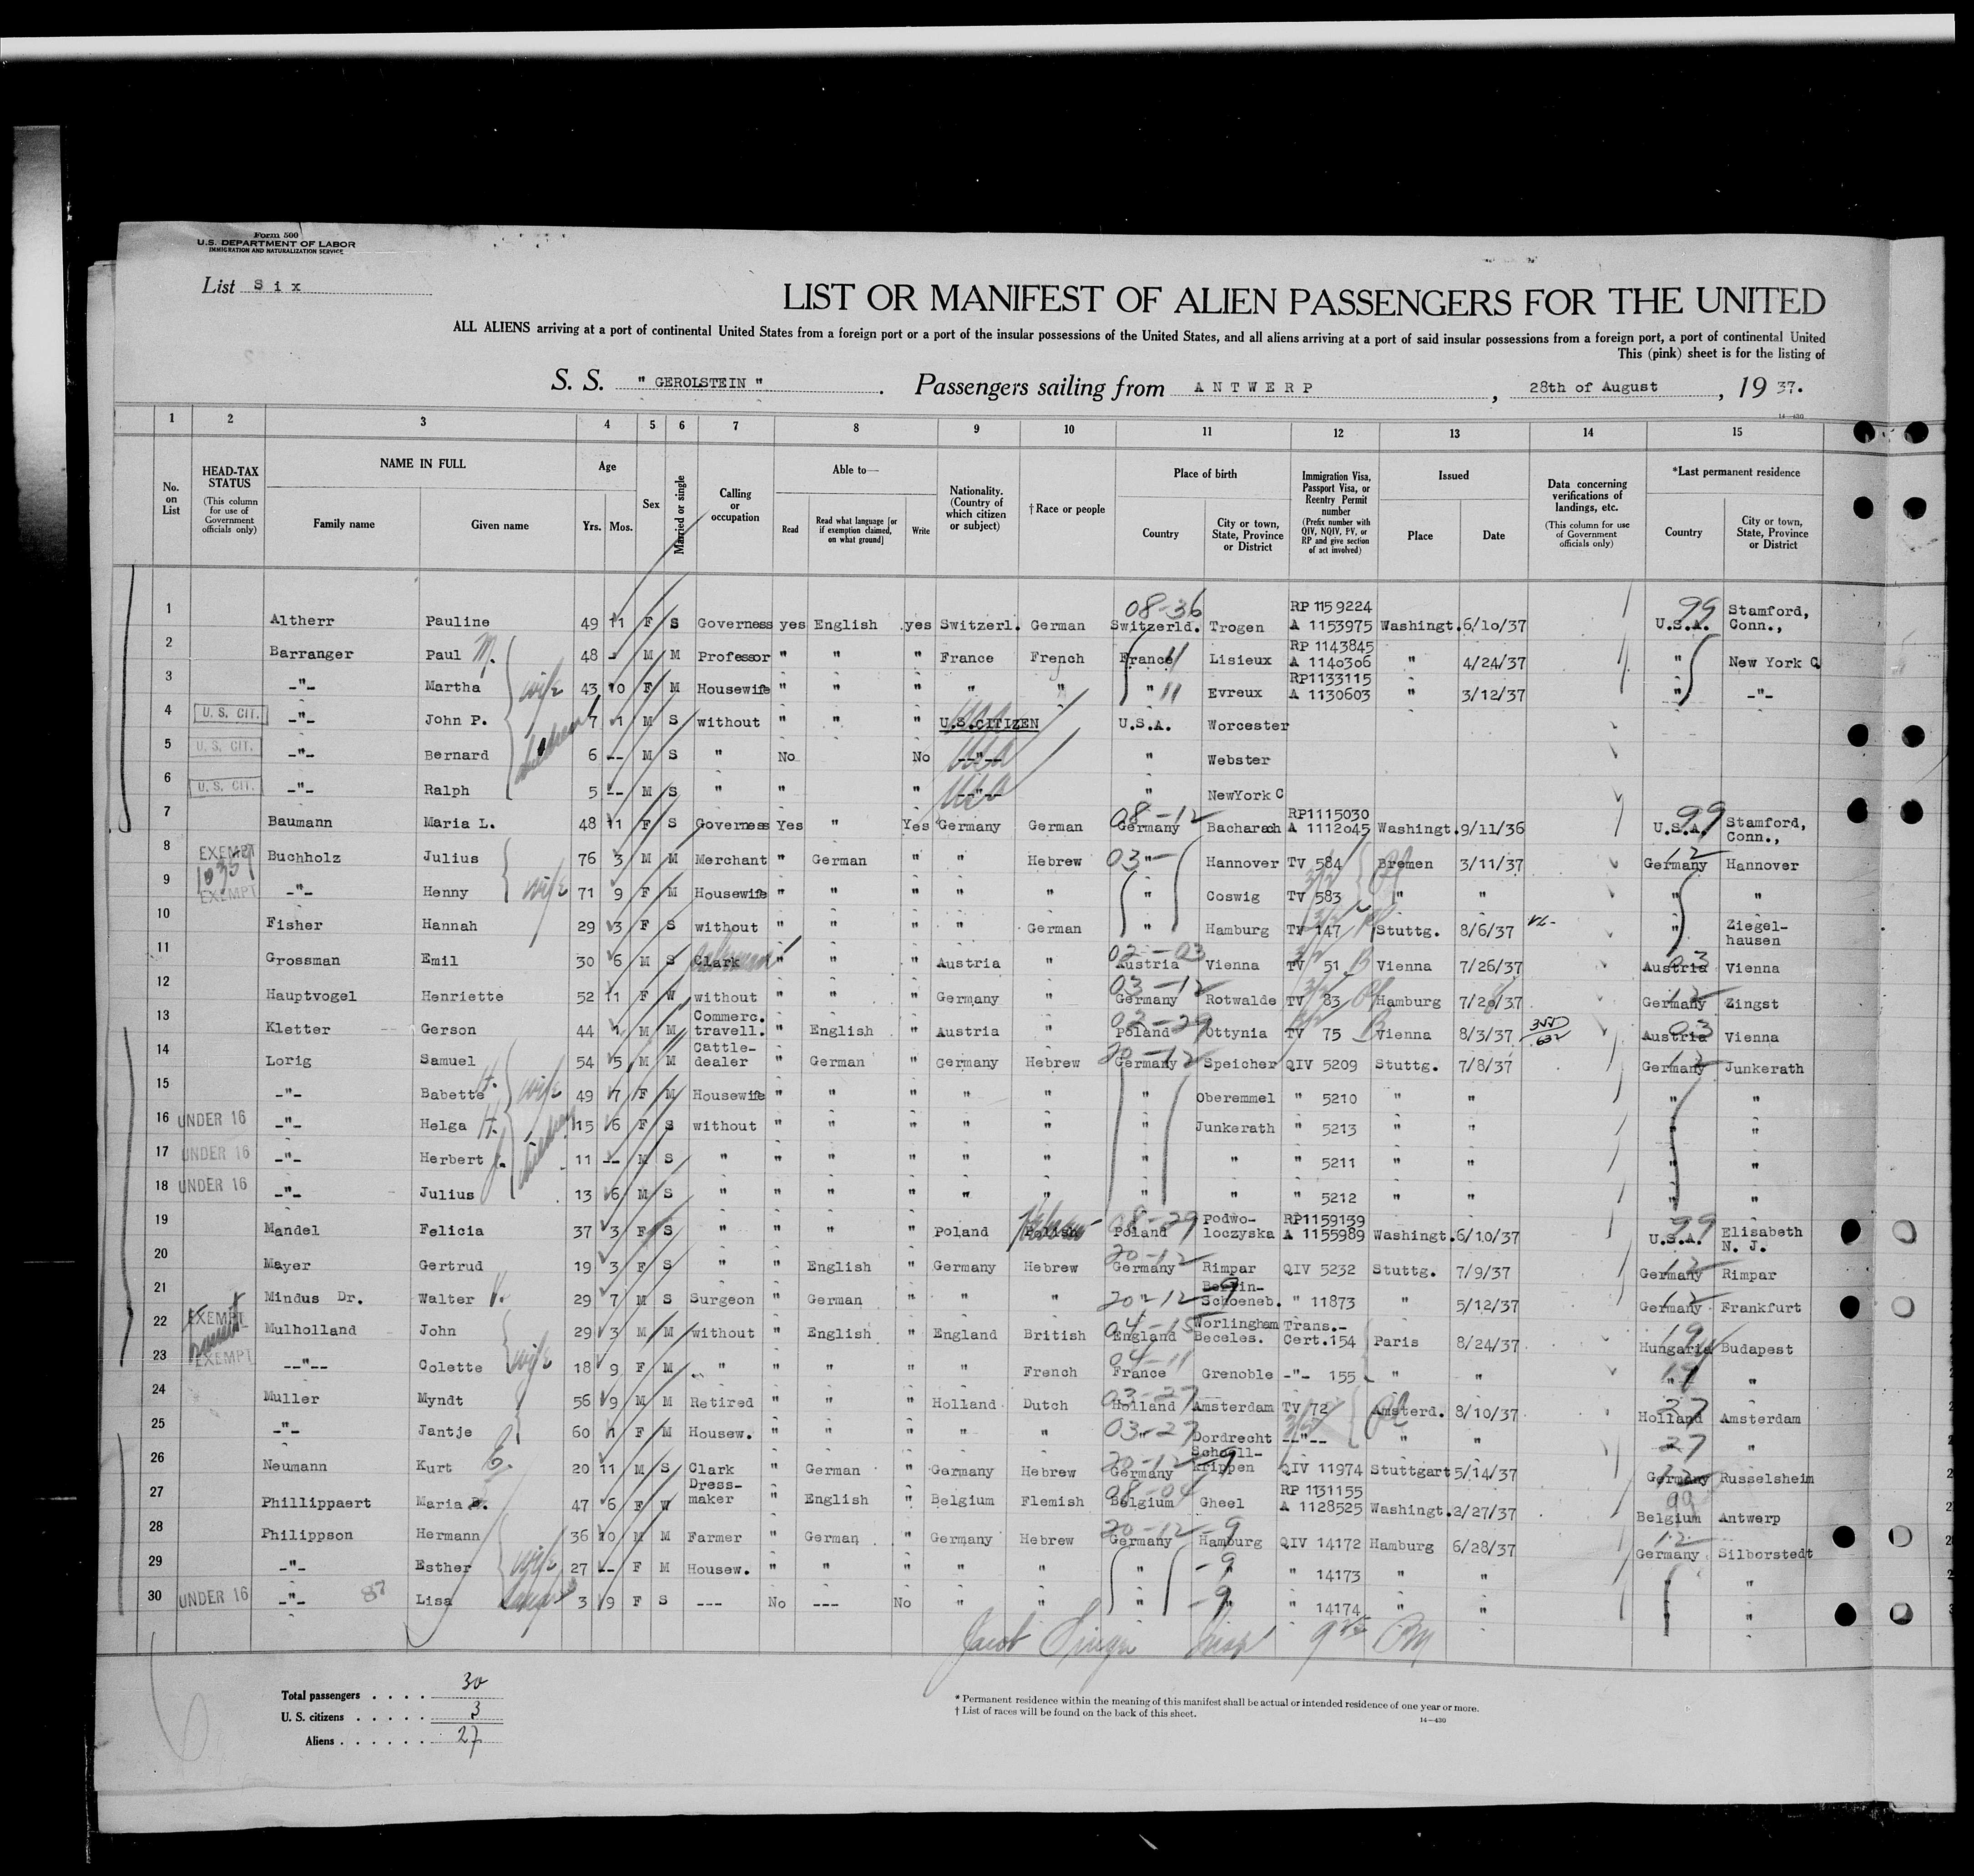 Form 500
U.S. DEPARTMENT OF LABOR
IMMIGRATION AND NATURALIZATION SERVICE
List Six
LIST OR MANIFEST OF ALIEN PASSENGERS FOR THE UNITED
ALL ALIENS arriving at a port of continental United States from a foreign port or a port of the insular possessions of the United States, and all aliens arriving at a port of said insular possessions from a foreign port, a port of continental United
This (pink) sheet is for the listing of
S. S. " GEROLSTEIN " . Passengers sailing from ANTWERP , 28th of August , 19 37.
14—430
1 2 3 4 5 6 7 8 9 10 11 12 13 14 15
No. on List
HEAD-TAX STATUS (This column for use of Government officials only)
NAME IN FULL Family name Given name
Age Yrs. Mos.
Sex
Married or single
Calling or occupation
Able to— Read Read what language [or if exemption claimed, on what ground] Write
Nationality. (Country of which citizen or subject)
†Race or people
Place of birth Country City or town, State, Province or District
Immigration Visa, Passport Visa, or Reentry Permit number (Prefix number with QIV, NQIV, PV, or RP and give section of act involved)
Issued Place Date
Data concerning verifications of landings, etc. (This column for use of Government officials only)
*Last permanent residence Country City or town, State, Province or District
1 Altherr Pauline 49 11 F S Governess yes English yes Switzerl. German 08-36 Switzerld. Trogen RP 1159224 A 1153975 Washingt. 6/10/37 99 U.S.A. Stamford, Conn.,
2 Barranger Paul M. 48 - M M Professor " " " France French France 11 Lisieux RP 1143845 A 1140306 " 4/24/37 " New York C
3 -"- Martha wife 43 10 F M Housewife " " " " " " 11 Evreux RP1133115 A 1130603 " 3/12/37 " -"-
4 U. S. CIT. -"- John P. children 7 1 M S without " " " U.S.CITIZEN U.S.A. Worcester
5 U. S. CIT. -"- Bernard 6 -- M S " No No --"-- USA " Webster
6 U. S. CIT. -"- Ralph 5 -- M S " " " --"-- USA " NewYork C
7 Baumann Maria L. 48 11 F S Governess Yes " Yes Germany German 08-12 Germany Bacharach RP1115030 A 1112045 Washingt. 9/11/36 99 U.S.A. Stamford, Conn.,
8 EXEMPT Buchholz Julius 76 3 M M Merchant " German " " Hebrew 03 " Hannover TV 584 Bremen 3/11/37 12 Germany Hannover
9 EXEMPT -"- Henny wife 71 9 F M Housewife " " " " " " Coswig TV 583 " " " "
10 Fisher Hannah 29 3 F S without " " " " German " Hamburg TV 147 Stuttg. 8/6/37 " Ziegel-hausen
11 Grossman Emil 30 6 M S Clark " " " Austria " 02-03 Austria Vienna TV 51 Vienna 7/26/37 03 Austria Vienna
12 Hauptvogel Henriette 52 11 F W without " " " Germany " 03-12 Germany Rotwalde TV 83 Hamburg 7/20/37 12 Germany Zingst
13 Kletter Gerson 44 1 M M Commerc. travell. " English " Austria " 02-29 Poland Ottynia TV 75 Vienna 8/3/37 03 Austria Vienna
14 Lorig Samuel 54 5 M M Cattle-dealer " German " Germany Hebrew 20-12 Germany Speicher QIV 5209 Stuttg. 7/8/37 12 Germany Junkerath
15 -"- Babette H. wife 49 7 F M Housewife " " " " " " Oberemmel " 5210 " " " "
16 UNDER 16 -"- Helga H. children 15 6 F S without " " " " " " Junkerath " 5213 " " " "
17 UNDER 16 -"- Herbert J. 11 -- M S " " " " " " " " " 5211 " " " "
18 UNDER 16 -"- Julius 13 6 M S " " " " " " " " " 5212 " " " "
19 Mandel Felicia 37 3 F S " " " " Poland Polish Hebrew 08-29 Poland Podwo-loczyska RP1159139 A 1155989 Washingt. 6/10/37 99 U.S.A. Elisabeth N. J.
20 Mayer Gertrud 19 3 F S " " English " Germany Hebrew 20-12 Germany Rimpar QIV 5232 Stuttg. 7/9/37 12 Germany Rimpar
21 Mindus Dr. Walter V. 29 7 M S Surgeon " German " " " 20-12 " Berlin-Schoeneb. 9 " 11873 " 5/12/37 12 Germany Frankfurt
22 EXEMPT Mulholland John 29 3 M M without " English " England British 04-15 England Worlingham Beceles. Trans.-Cert.154 Paris 8/24/37 19 Hungaria Budapest
23 EXEMPT --"-- Colette wife 18 9 F M " " " " " French 04-11 France Grenoble -"- 155 " " 19 " "
24 Muller Myndt 56 9 M M Retired " " " Holland Dutch 03-27 Holland Amsterdam TV 72 Amsterd. 8/10/37 27 Holland Amsterdam
25 -"- Jantje 60 1 F M Housew. " " " " " 03-27 " Dordrecht --"-- " " 27 " "
26 Neumann Kurt E. 20 11 M S Clark " German " Germany Hebrew 20-12 Germany Schoell-krippen 9 QIV 11974 Stuttgart 5/14/37 12 Germany Russelsheim
27 Phillippaert Maria 47 6 F W Dress-maker " English " Belgium Flemish 08-04 Belgium Gheel RP 1131155 A 1128525 Washingt. 2/27/37 99 Belgium Antwerp
28 Philippson Hermann 36 10 M M Farmer " German " Germany Hebrew 20-12-9 Germany Hamburg QIV 14172 Hamburg 6/28/37 12 Germany Silborstedt
29 -"- Esther wife 27 -- F M Housew. " " " " " " -9 " 14173 " " "
30 UNDER 16 -"- 87 Lisa 3 9 F S --- No --- No " " " -9 " " 14174 " " "
Jacob
Total passengers . . . . 30
U. S. citizens . . . . . 3
Aliens . . . . . . 27
* Permanent residence within the meaning of this manifest shall be actual or intended residence of one year or more.
† List of races will be found on the back of this sheet.
14—430